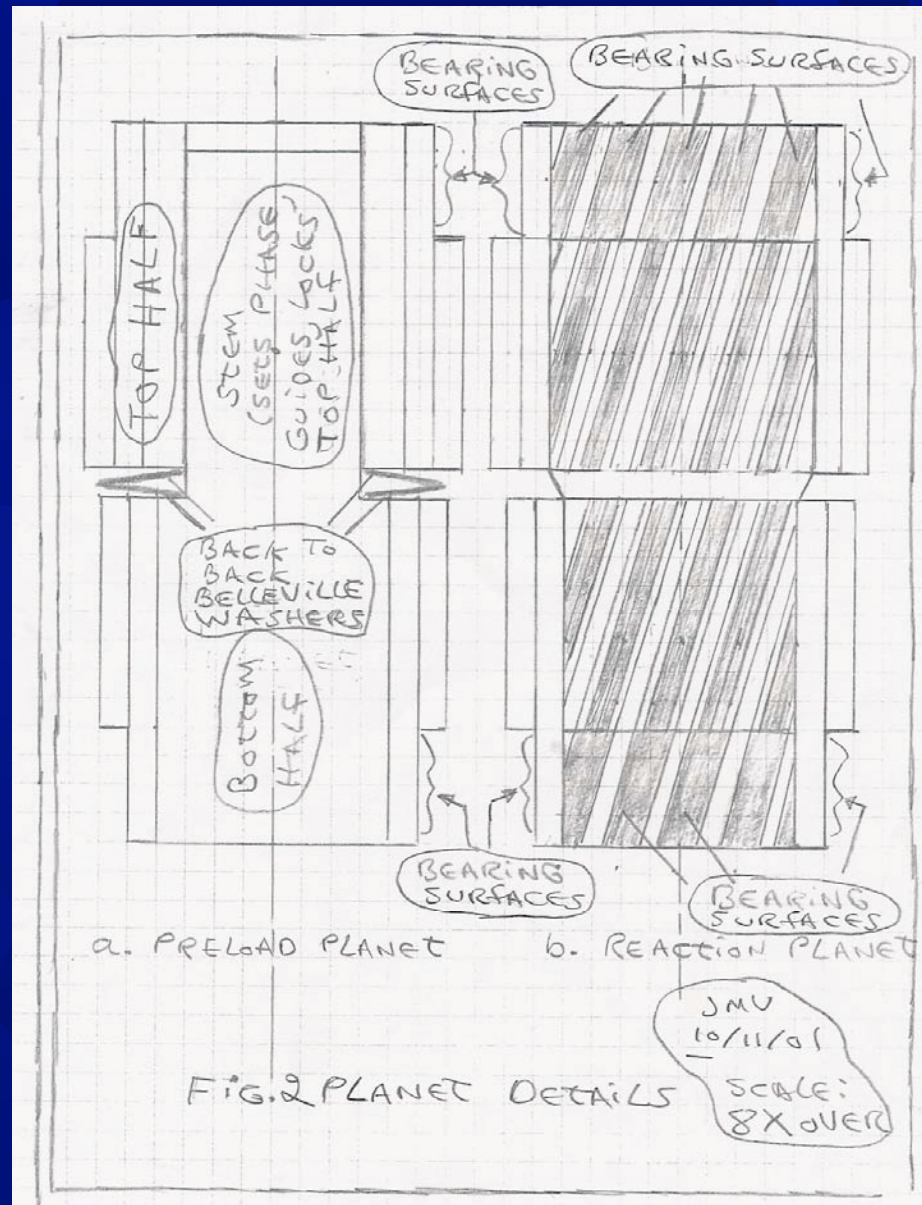 BEARING
SURFACES
BEARING SURFACES
TOP HALF
STEM
(SETS PHASE,
GUIDES, LOCKS
TOP HALF
BACK TO
BACK
BELLEVILLE
WASHERS
BOTTOM
HALF
BEARING
SURFACES
BEARING
SURFACES
a. PRELOAD PLANET
b. REACTION PLANET
JMV
10/11/01
SCALE:
8X OVER
FIG.2 PLANET DETAILS